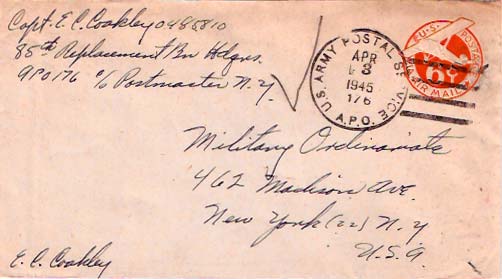 Capt. E. C. Coakley 0485810
85th Replacement Bn Hdqrs.
APO 176 c/o Postmaster N.Y.
U.S. ARMY POSTAL SERVICE
APR
3
1945
176
A.P.O.
U.S. POSTAGE
6¢
AIR MAIL
Military Ordinariate
462 Madison Ave.
New York (22) N.Y
U.S.A
E. C. Coakley